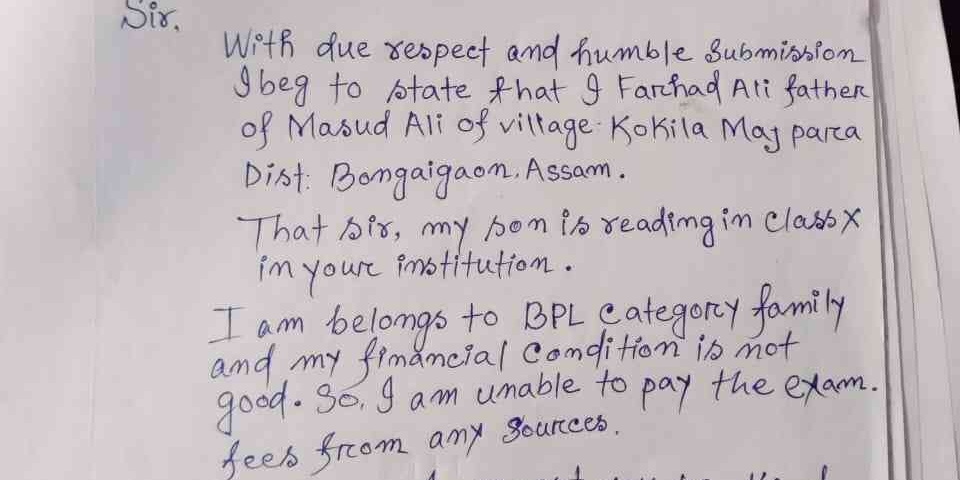 Sir,
With due respect and humble Submission
I beg to state that I Farhad Ali father
of Masud Ali of village: Kokila Maj para
Dist: Bongaigaon, Assam.
That sir, my son is reading in class X
in your institution.
I am belongs to BPL Category family
and my financial Condition is not
good. So, I am unable to pay the exam.
fees from any sources.